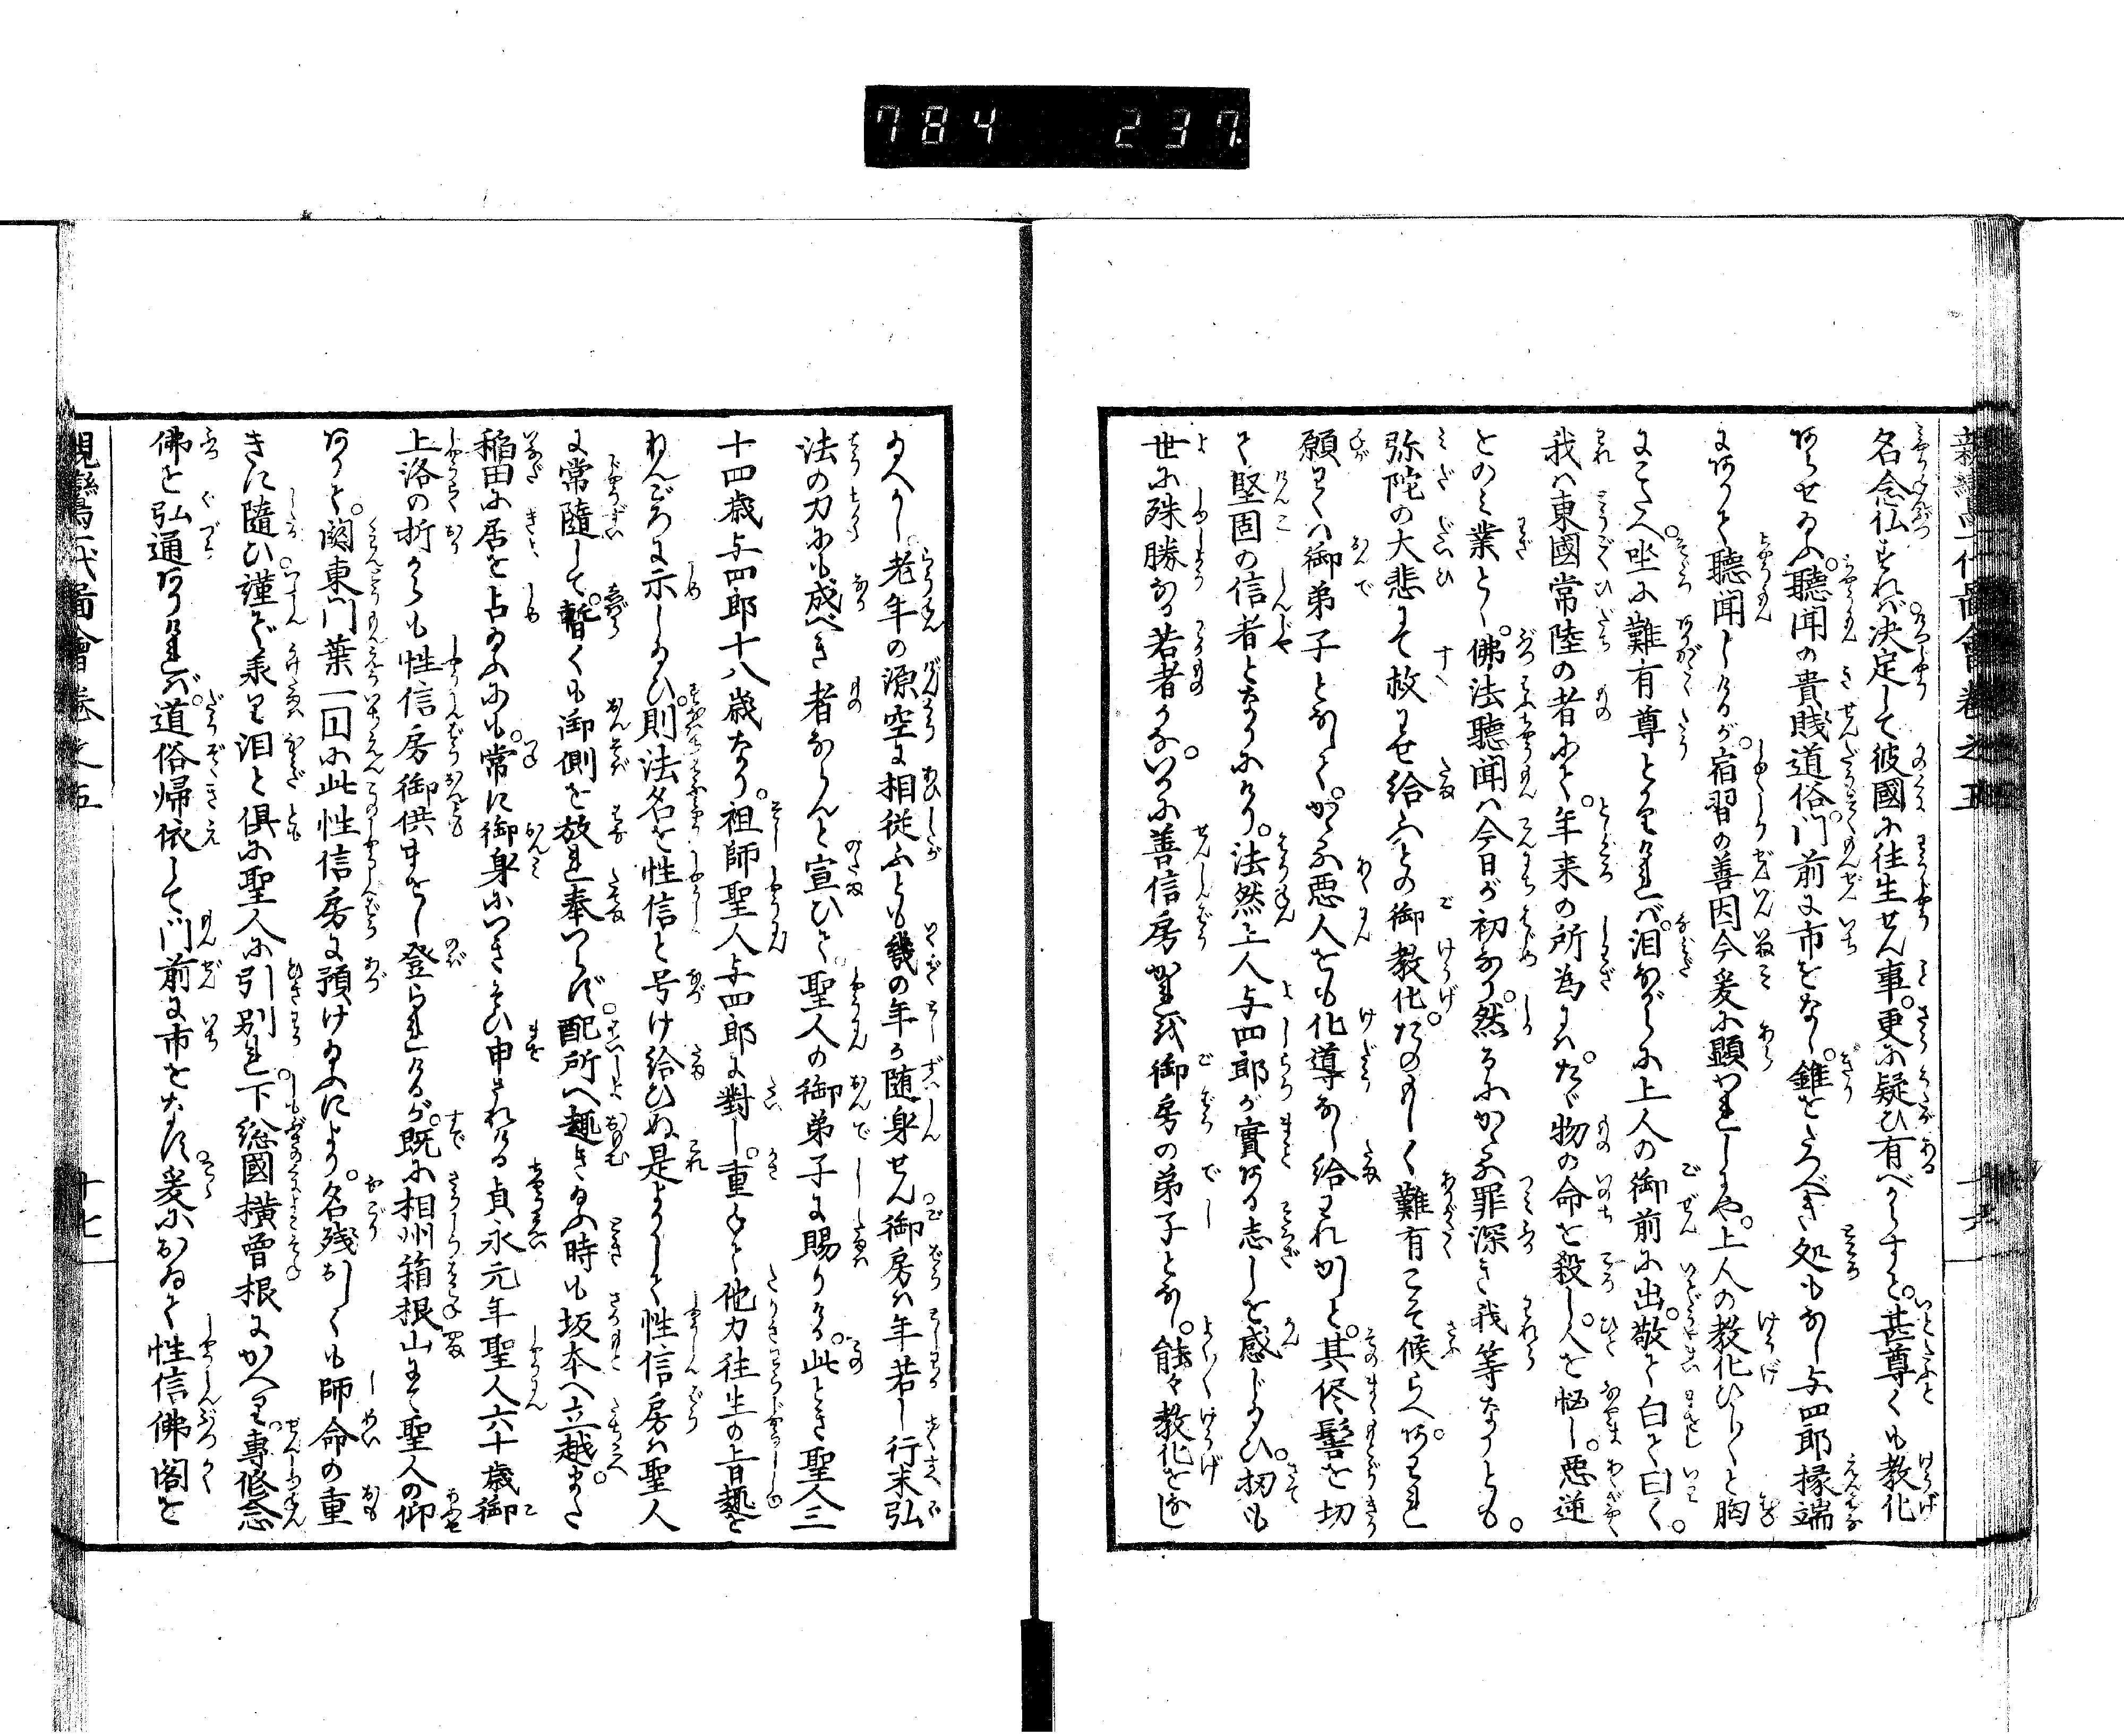 784 237
親鸞聖人一代圖會卷之五
名念仏すれバ決定して彼國に往生せん事。更に疑ひ有べからすと。甚尊くも教化
ましませ給ふ。聽聞の貴賤道俗。門前に市をなし。錐をたつべき処もなし与四郎椽端
にありて聽聞しけるが。宿習の善因今爰に顕ハれしにや。上人の教化ひし〳〵と胸
にこたへ。坐に難有尊とかりけれバ。泪ながらに上人の御前に出。敬て白て曰く。
我ハ東國常陸の者にて。年来の所為にハ。たゞ物の命を殺し。人を悩し。悪逆
とのミ業とし。佛法聽聞ハ今日が初なり。然るにかゝる罪深き我等なりとも。
弥陀の大悲にて救ハせ給ふとの御教化。たのもしく難有こそ候らへ。あはれ
願ハくハ御弟子となして。かゝる悪人をも化導なし給ハれかしと。其侭髻を切
て堅固の信者となりにけり。法然上人与四郎が實ある志しを感じ給ひ。扨も
世に殊勝なる若者かな。いかに善信房かれ我御房の弟子となし。能々教化を遂し
給へかし。老年の源空に相従ふとも幾の年か随身せん御房ハ年若し行末弘
法の力にも成べき者ならんと宣ひて。聖人の御弟子に賜りける。此とき聖人三
十四歳与四郎十八歳なり。祖師聖人与四郎に對し。重ねて他力往生の旨趣を
ねんごろに示し給ひ。則法名を性信と号け給ひぬ是よりして性信房ハ聖人
に常隨して。暫くも御側を放れ奉つらず。配所へ趣き給ふ時も坂本へ立越。また
稲田に居を占給ふにも。常に御身につきそひ申されける貞永元年聖人六十歳御
上洛の折からも性信房御供まをし登られけるが。既に相州箱根山にて聖人の仰
ありて。関東門葉一囙に此性信房に預け給ふにより。名残おしくも師命の重
きに隨ひ。謹で承ハり泪と俱に聖人に引別れ。下総國横曽根にかへり。專修念
佛を弘通ありけれバ。道俗帰依して門前に市をなす。爰におゐて性信佛閣を
親鸞聖人一代圖會卷之五 十七